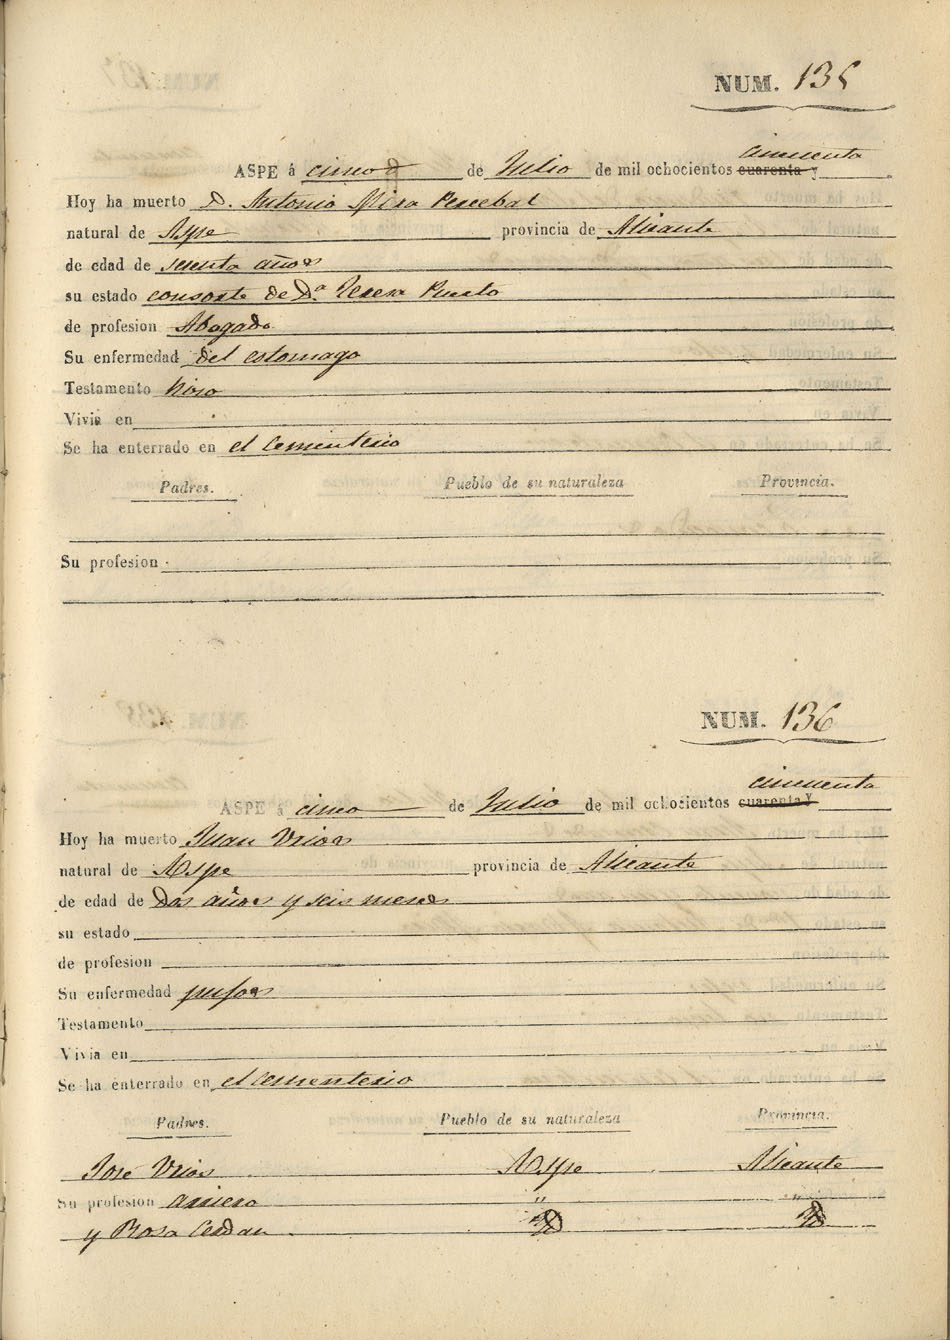 NUM. 135
cincuenta
ASPE á cinco de Julio de mil ochocientos cuarenta y
Hoy ha muerto D. Antonio Mira Percebal
natural de Aspe provincia de Alicante
de edad de sesenta años
su estado consorte de Dª. Teresa Puerto
de profesion Abogado
Su enfermedad del estomago
Testamento hizo
Vivia en
Se ha enterrado en el Cementerio
Padres. Pueblo de su naturaleza Provincia.
Su profesion
NUM. 136
cincuenta
ASPE á cinco de Julio de mil ochocientos cuarenta y
Hoy ha muerto Juan Urios
natural de Aspe provincia de Alicante
de edad de dos años y seis meses
su estado
de profesion
Su enfermedad
Testamento
Vivia en
Se ha enterrado en el Cementerio
Padres. Pueblo de su naturaleza Provincia.
José Urios Aspe Alicante
Su profesion arriero " "
y Rosa Cerdan